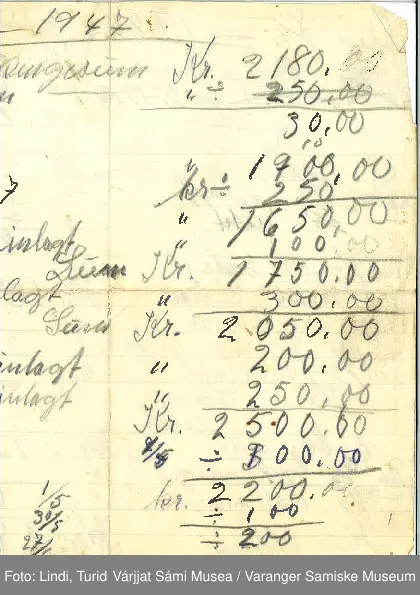 1947
Kr. 2180.00
" ÷ 250,00
30,00
" 1900,00
7 kr ÷ 250
" 1650,00
inlagt " 100.00
Sum Kr. 1750.00
lagt " 300.00
Sum Kr. 2050.00
inlagt " 200.00
inlagt 250.00
Kr. 2500.00
÷ 300.00
kr. 2200.00
1/5 ÷ 100
30/5 ÷ 200
Foto: Lindi, Turid Várjjat Sámi Musea / Varanger Samiske Museum